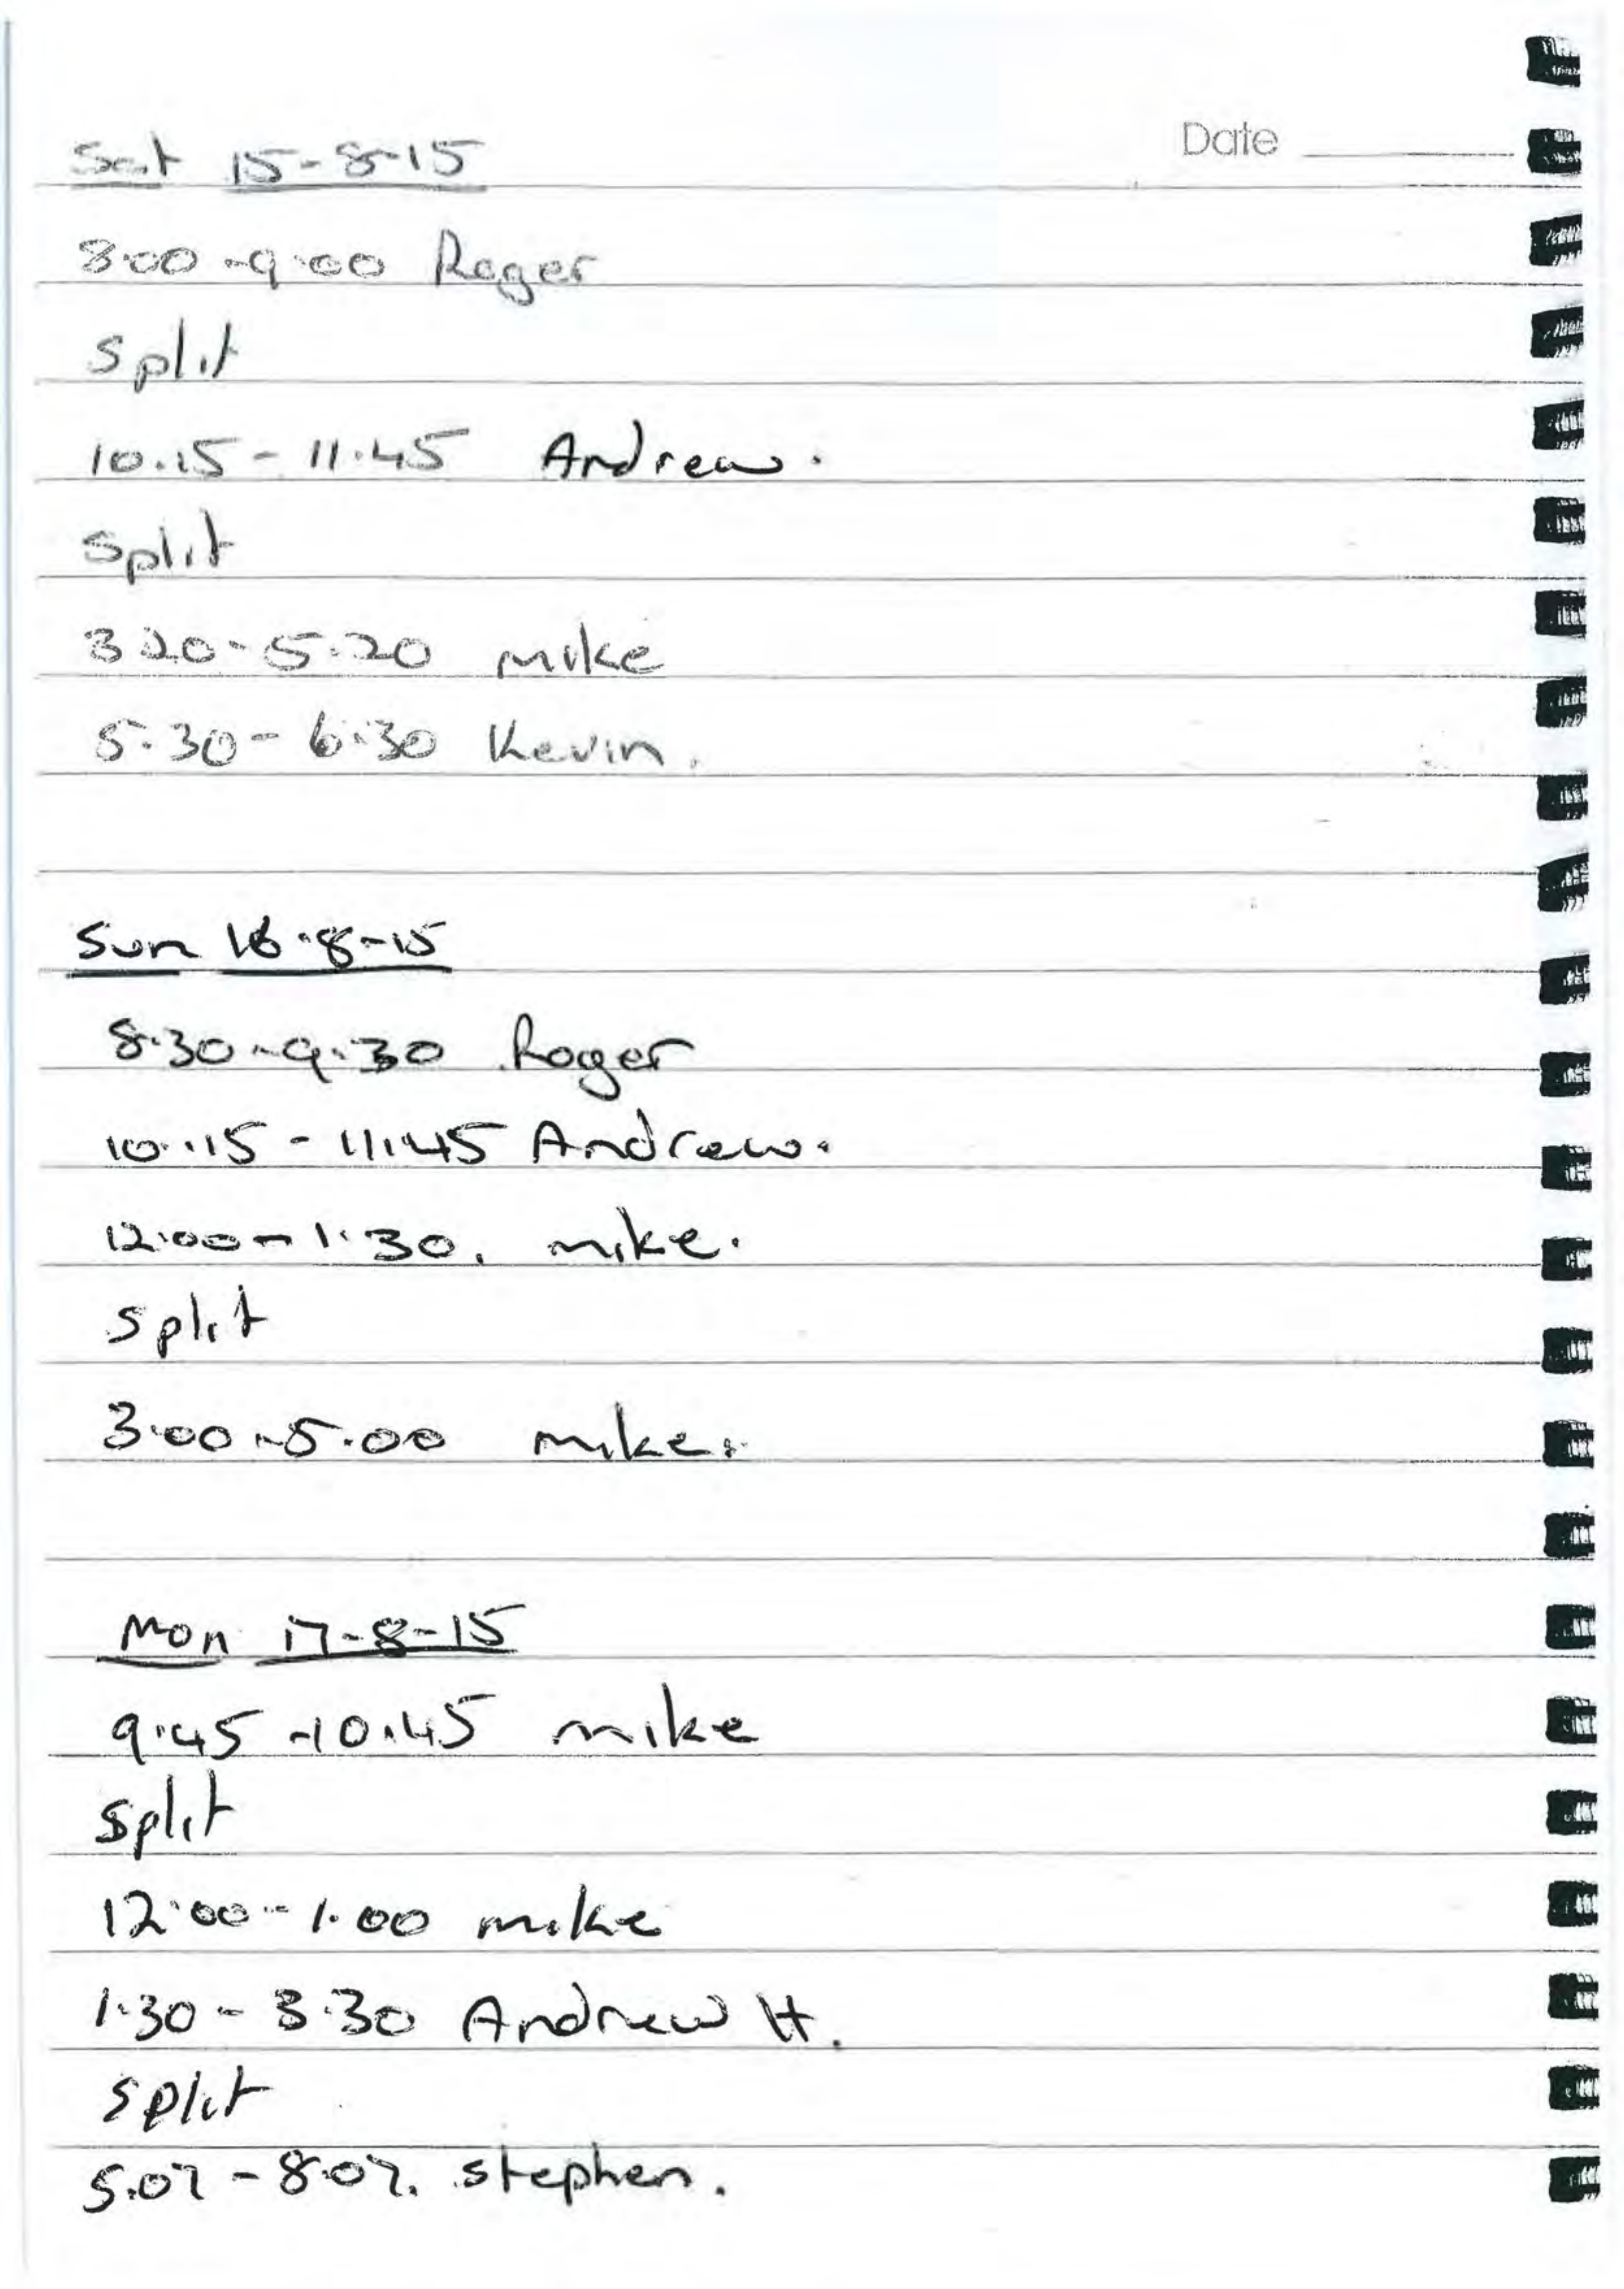 Date
Sat 15-8-15
8.00-9.00 Roger
split
10.15-11.45 Andrew.
split
3 20-5.20 mike
5.30-6.30 Kevin.
Sun 16.8-15
8.30-9.30 Roger
10.15-11.45 Andrew.
12.00-1.30. mike.
split
3.00-5.00 mike.
Mon 17-8-15
9.45-10.45 mike
split
12.00-1.00 mike
1.30-3.30 Andrew H.
split
5.07-8.07. stephen.